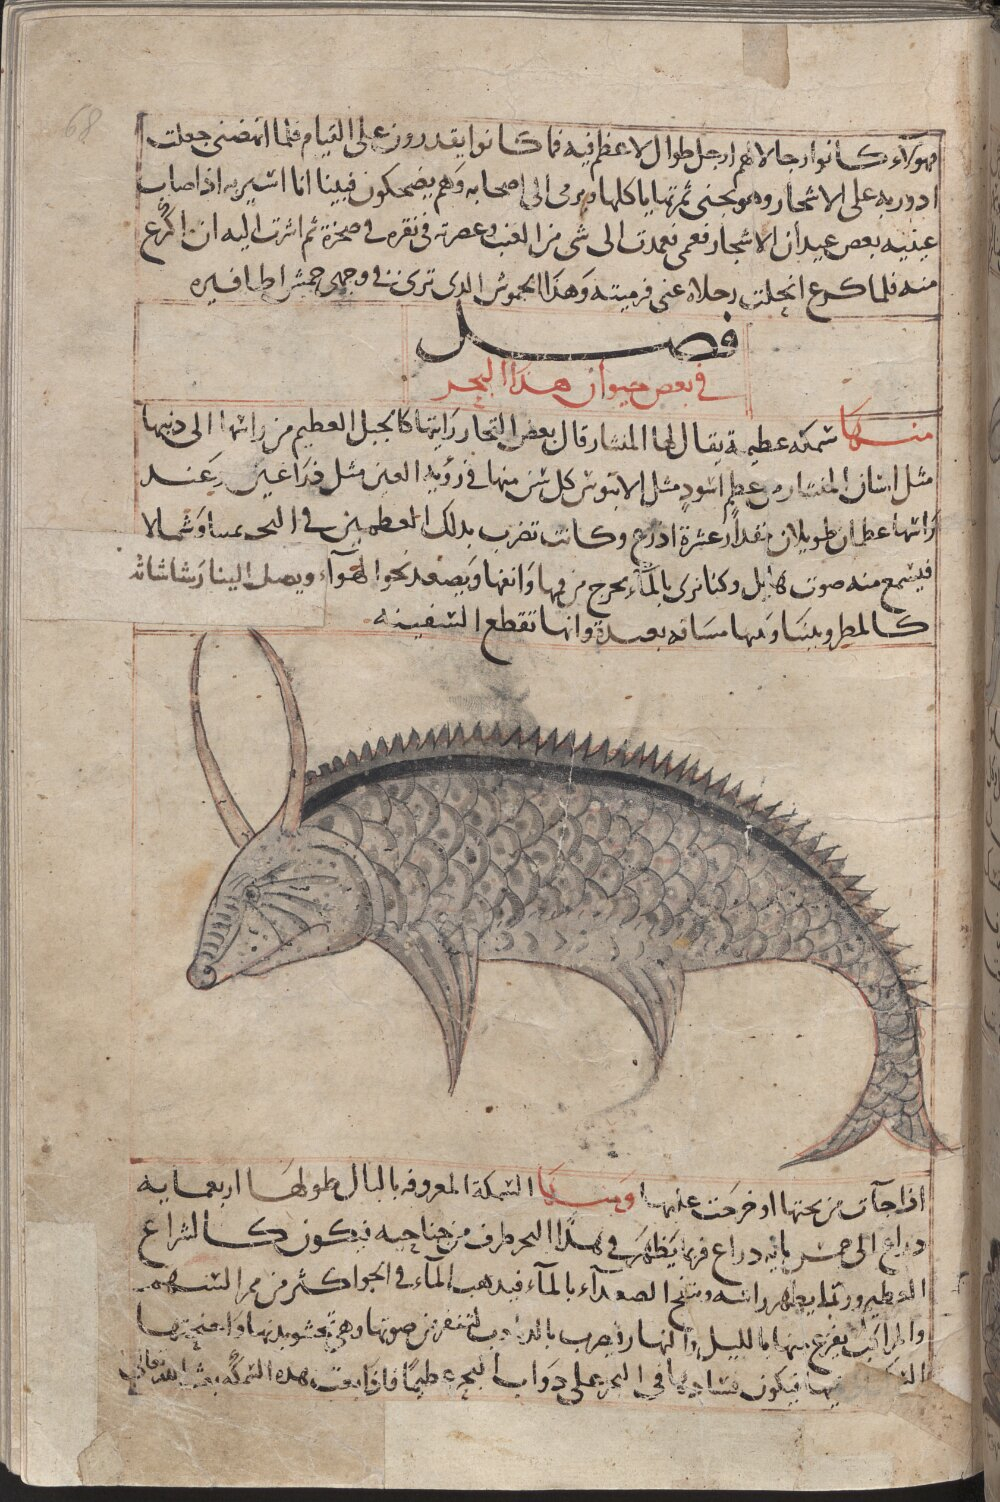 68
فهولاء كانوا رجالا لهم ارجل طوال لا عظم فيه فما كانوا يقدرون على القيام فلما انهضنى جعلت
ادور به على الاشجار وهو يجنى ثمرتها ياكلها ويرمى الى اصحابه وهم يضحكون فبينا انا اسير به اذ اصاب
عينيه بعض عيدان الاشجار فعمى فعمدت الى شى من العنب وعصرته فى نقره فى صخرة ثم اشرت اليه ان اكرع
منه فلما كرع انحلت رجلاه عنى فرميته وهذا الخموش الذى ترى فى وجهى خمش اظافيره
فصل
فى بعض حيوان هذا البحر
منها سمكه عظيمة يقال لها المنشار قال بعض التجار رايتها كالجبل العظيم من راسها الى ذنبها
مثل اسنان المنشار من عظم اسود مثل الابنوس كل سن منها فى رؤية العين مثل ذراعين وعند
راسها عظمان طويلان مقدار عشرة اذرع وكانت تضرب بذلك العظمين فى البحر يمينا وشمالا
فيسمع منه صوت هايل وكنا نرى بالماء يخرج من فيها وانفها ويصعد نحو الهوآء ويصل الينا رشاشاته
كالمطر وبيننا وبينها مسافه بعيدة وانها تقطع السفينه
اذا جآت من تحتها او خرجت عليها ومنها السمكة المعروفه بالبال طولها اربعمايه
ذراع الى خمس مايه ذراع فربما يظهر فى هذا البحر طرف من جناحيه فيكون كالشراع
العظيم وربما يظهر راسه وينفخ الصعدآء بالمآء فيذهب المآء فى الجو اكثر من ممر السهم
والمراكب يفزع منها بالليل والنهار ويضرب بالدبادب لتنفر من صوتها وهى تحشو بذنبها واجنحتها
السمك فيها فيكون فسادها فى البحر على دواب البحر عظيما فاذا بغت هذه السمكه بعث الله تعالى